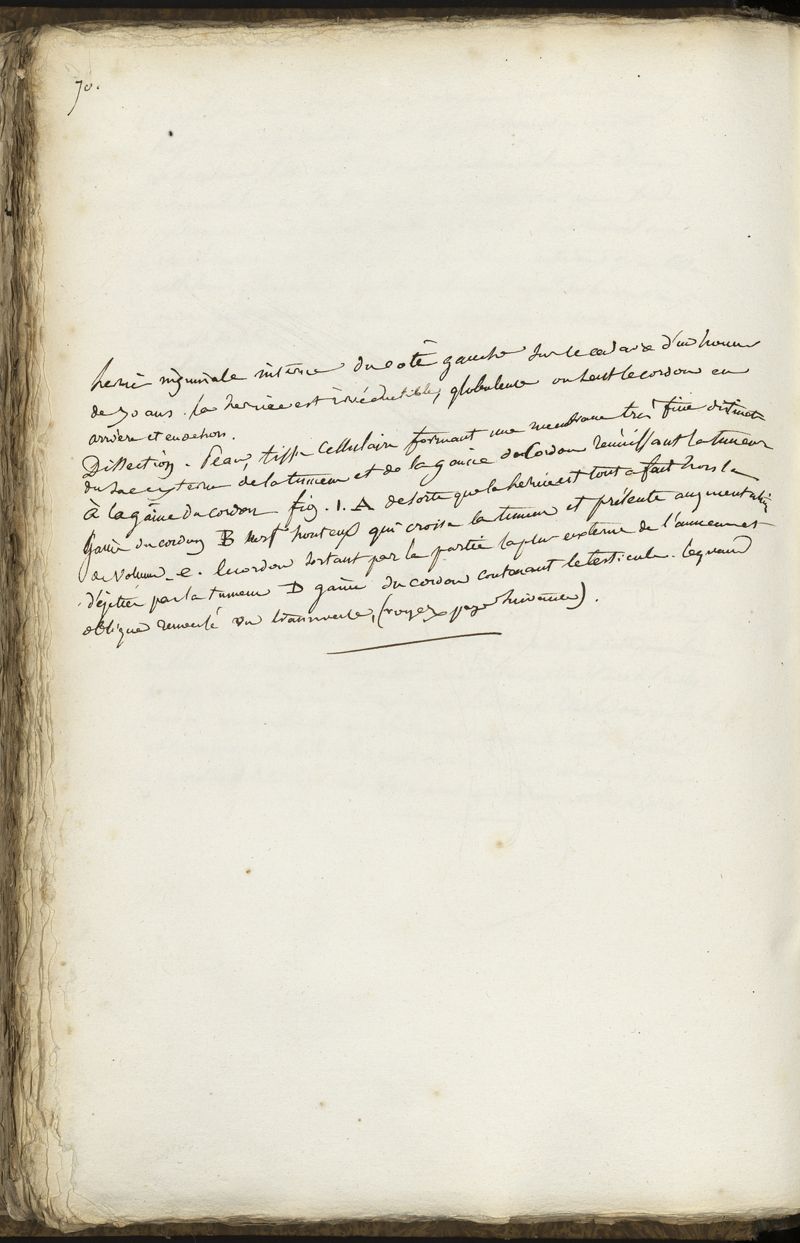 70.
hernie inguinale interne du côté gauche sur le cadavre d'un homme
de 50 ans. la hernie est irréductible, globuleuse on sent le cordon en
arrière et en dehors.
Dissection. Peau, tissu cellulaire formant une membrane très fine distincte
du sac externe de la tumeur et de la gaine du Cordon réunissant la tumeur
à la gaine du cordon fig. 1. A de sorte que la hernie est tout a fait hors la
gaine du cordon B nerf honteux qui croise la tumeur et présente augmentation
de volume _ C. le cordon sortant par la partie la plus externe de l'anneau et
déjettée par la tumeur D gaine du cordon contenant le testicule. le grand
oblique renversé du transverse, (voyez page suivante).